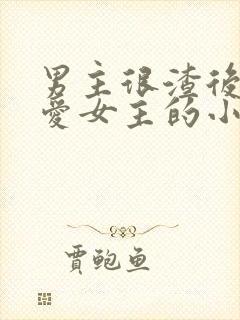 男主很渣後
愛女主的小
賈鲍鱼